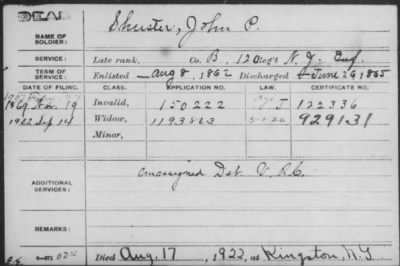 DEAD
NAME OF SOLDIER: Shuster, John P.
SERVICE: Late rank, Co. B, 120 Reg't N. Y. Inf.
TERM OF SERVICE: Enlisted Aug 8, 1862 Discharged June 26, 1865
DATE OF FILING. CLASS. APPLICATION NO. LAW. CERTIFICATE NO.
1869 Nov. 19 Invalid, 150222 122336
1922 Sep 14 Widow, 1193863 5-1-20 929131
Minor,
ADDITIONAL SERVICES: unassigned Det. V. R. C.
REMARKS:
Died Aug. 17, 1922, at Kingston, N.Y.